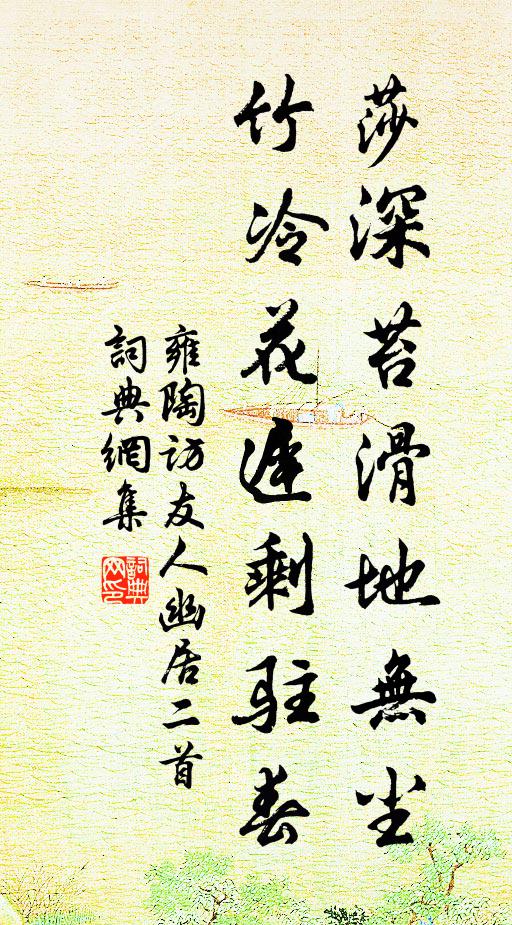 莎深苔滑地無尘
竹冷花遲剩駐春
雍陶訪友人幽居二首
詞典網集
詞典网印